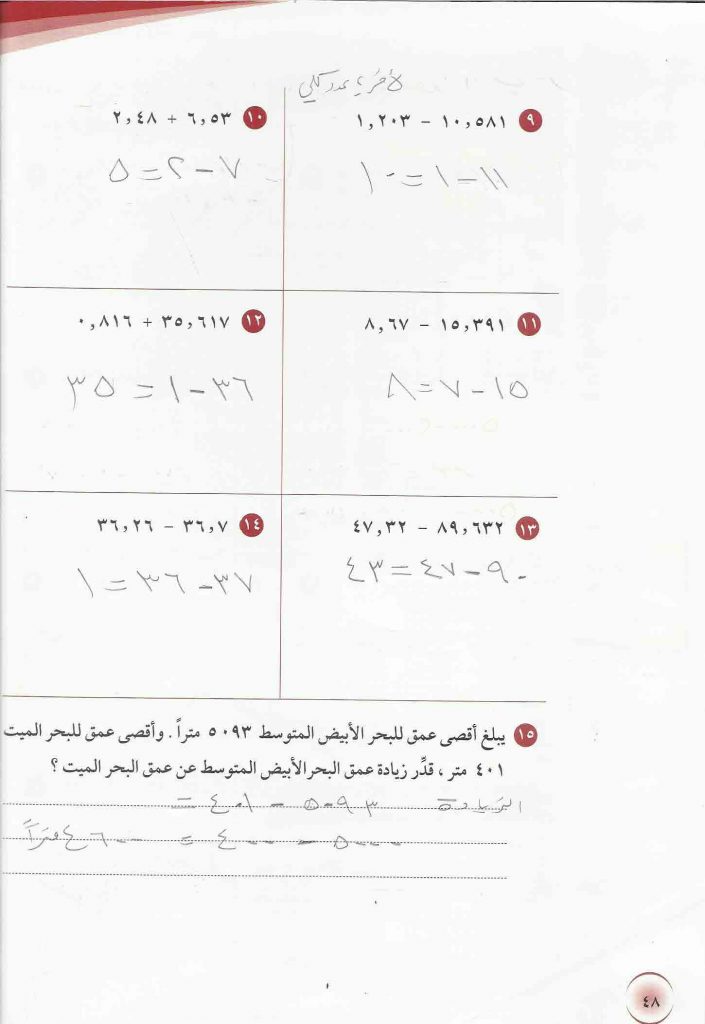 لأقرب عدد كلي
٩ ١٠,٥٨١ − ١,٢٠٣
١١ − ١ = ١٠
١٠ ٦,٥٣ + ٢,٤٨
٧ − ٢ = ٥
١١ ١٥,٣٩١ − ٨,٦٧
١٥ − ٧ = ٨
١٢ ٣٥,٦١٧ + ٠,٨١٦
٣٦ − ١ = ٣٥
١٣ ٨٩,٦٣٢ − ٤٧,٣٢
٩٠ − ٤٧ = ٤٣
١٤ ٣٦,٧ − ٣٦,٢٦
٣٧ − ٣٦ = ١
١٥ يبلغ أقصى عمق للبحر الأبيض المتوسط ٥٠٩٣ متراً. وأقصى عمق للبحر الميت
٤٠١ متر ، قدِّر زيادة عمق البحر الأبيض المتوسط عن عمق البحر الميت ؟
الزيادة ٥٠٩٣ − ٤٠١ =
٥٠٠٠ − ٤٠٠ = ٤٦٠٠ متراً
٤٨